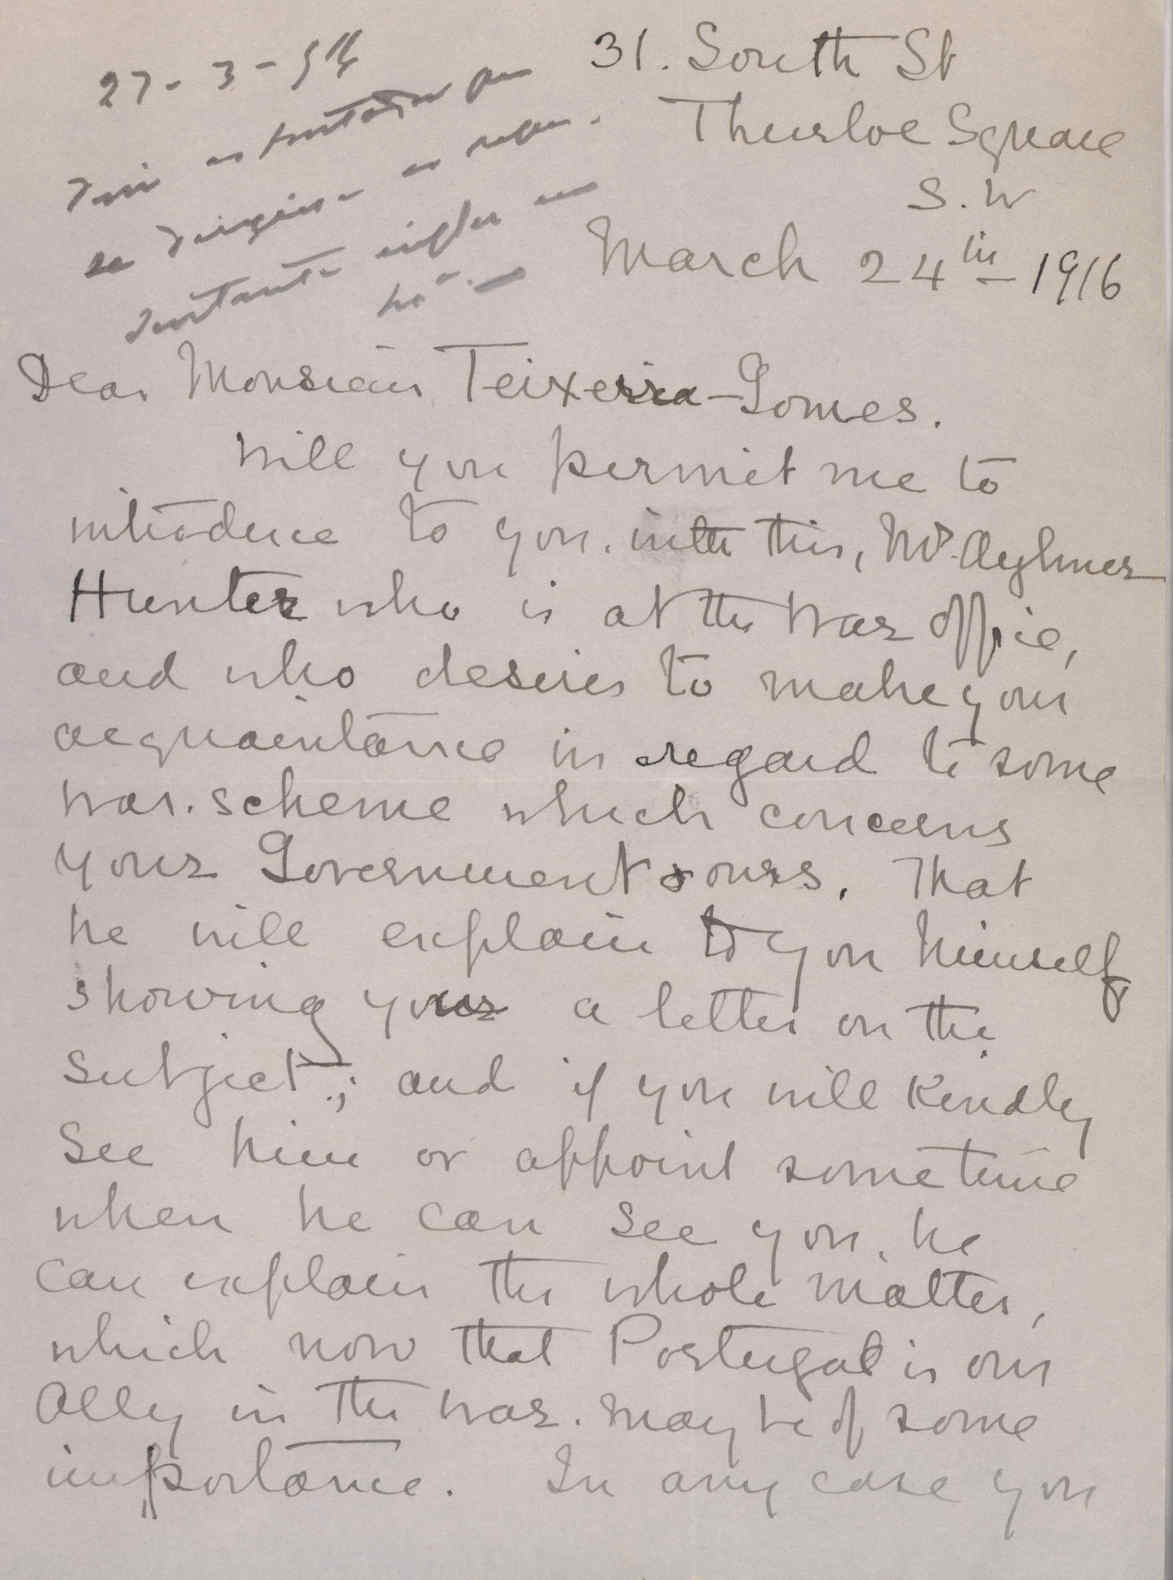 27-3-
31. South St
Thurloe Square
S.W
March 24th 1916
Dear Monsieur Teixeira-Gomes.
Will you permit me to
introduce to you. with this, Mr. Aylmer
Hunter who is at the War Office,
and who desires to make your
acquaintance in regard to some
war. scheme which concerns
your Government & ours. That
he will explain to you himself,
showing you a letter on the
subject.; and if you will Kindly
See him or appoint some time
when he can see you, he
can explain the whole matter,
which now that Portugal is our
Ally in the war. may be of some
importance. In any case you